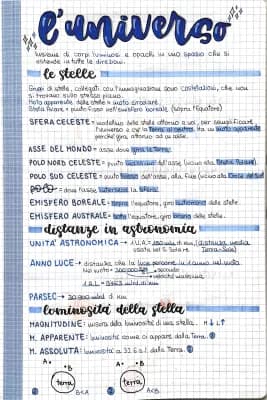 l'universo
insieme di corpi luminosi e opachi in uno spazio che si
estende in tutte le direzioni.
le stelle
Gruppi di stelle, collegati con l'immaginazione sono costellazioni, che non
si trovano sullo stesso piano.
Moto apparente delle stelle = moto circolare.
Stella Polare = punto fisso nell'emisfero boreale (sopra l'equatore)
SFERA CELESTE = modellino della volta attorno a noi, per semplificare
l'universo e c'è la terra al centro, ha un moto apparente
perché gira attorno ad un asse.
ASSE DEL MONDO = asse dove gira la terra.
POLO NORD CELESTE = punto dell'asse (vicino alla Stella Polare)
POLO SUD CELESTE = punto dell'asse, alla fine (vicino alla Croce del Sud)
POLO = dove l'asse interseca la sfera.
EMISFERO BOREALE = sopra l'equatore, gira delle stelle.
EMISFERO AUSTRALE = sotto l'equatore, gira delle stelle.
distanze in astronomia
UNITÀ ASTRONOMICA → 1 U.A. = 150 mln di km (distanza media
Terra)
ANNO LUCE → distanza che la luce percorre in 1 anno nel vuoto
Nel vuoto = 300.000 km secondo
velocità
1 A.L. = 9463 mld di km
PARSEC → 30.900 mld di km
luminosità della stella
MAGNITUDINE: misura della luminosità di una stella. M ↓ L ↑
M. APPARENTE: luminosità come ci appare dalla Terra. ①
M. ASSOLUTA: luminosità a 32.6 a.l. dalla Terra. ②
A B
① terra B<A
A B
② terra B>A